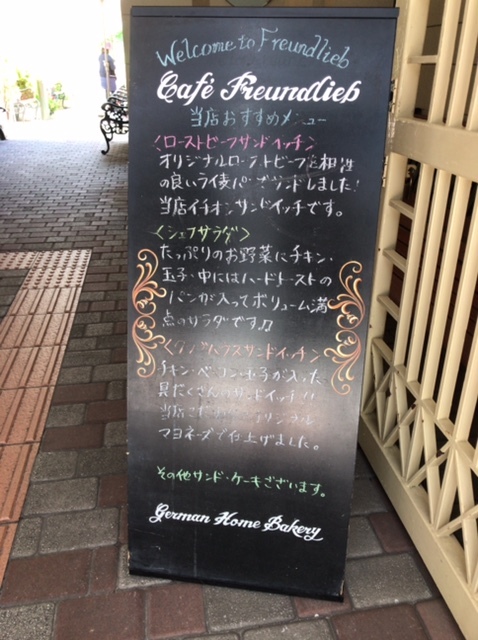 Welcome to Freundlieb
Café Freundlieb
当店おすすめメニュー
〈ローストビーフサンドイッチ〉
オリジナルローストビーフと相性
の良いライ麦パンでサンドしました!
当店イチオシサンドイッチです。
〈シェフサラダ〉
たっぷりのお野菜にチキン・
玉子・中にはハードトーストの
パンが入ってボリューム満
点のサラダです♫
〈クラブハウスサンドイッチ〉
チキン・ベーコン・玉子が入った
具だくさんのサンドイッチ!!
当店こだわりのオリジナル
マヨネーズで仕上げました。
その他サンド・ケーキございます。
German Home Bakery